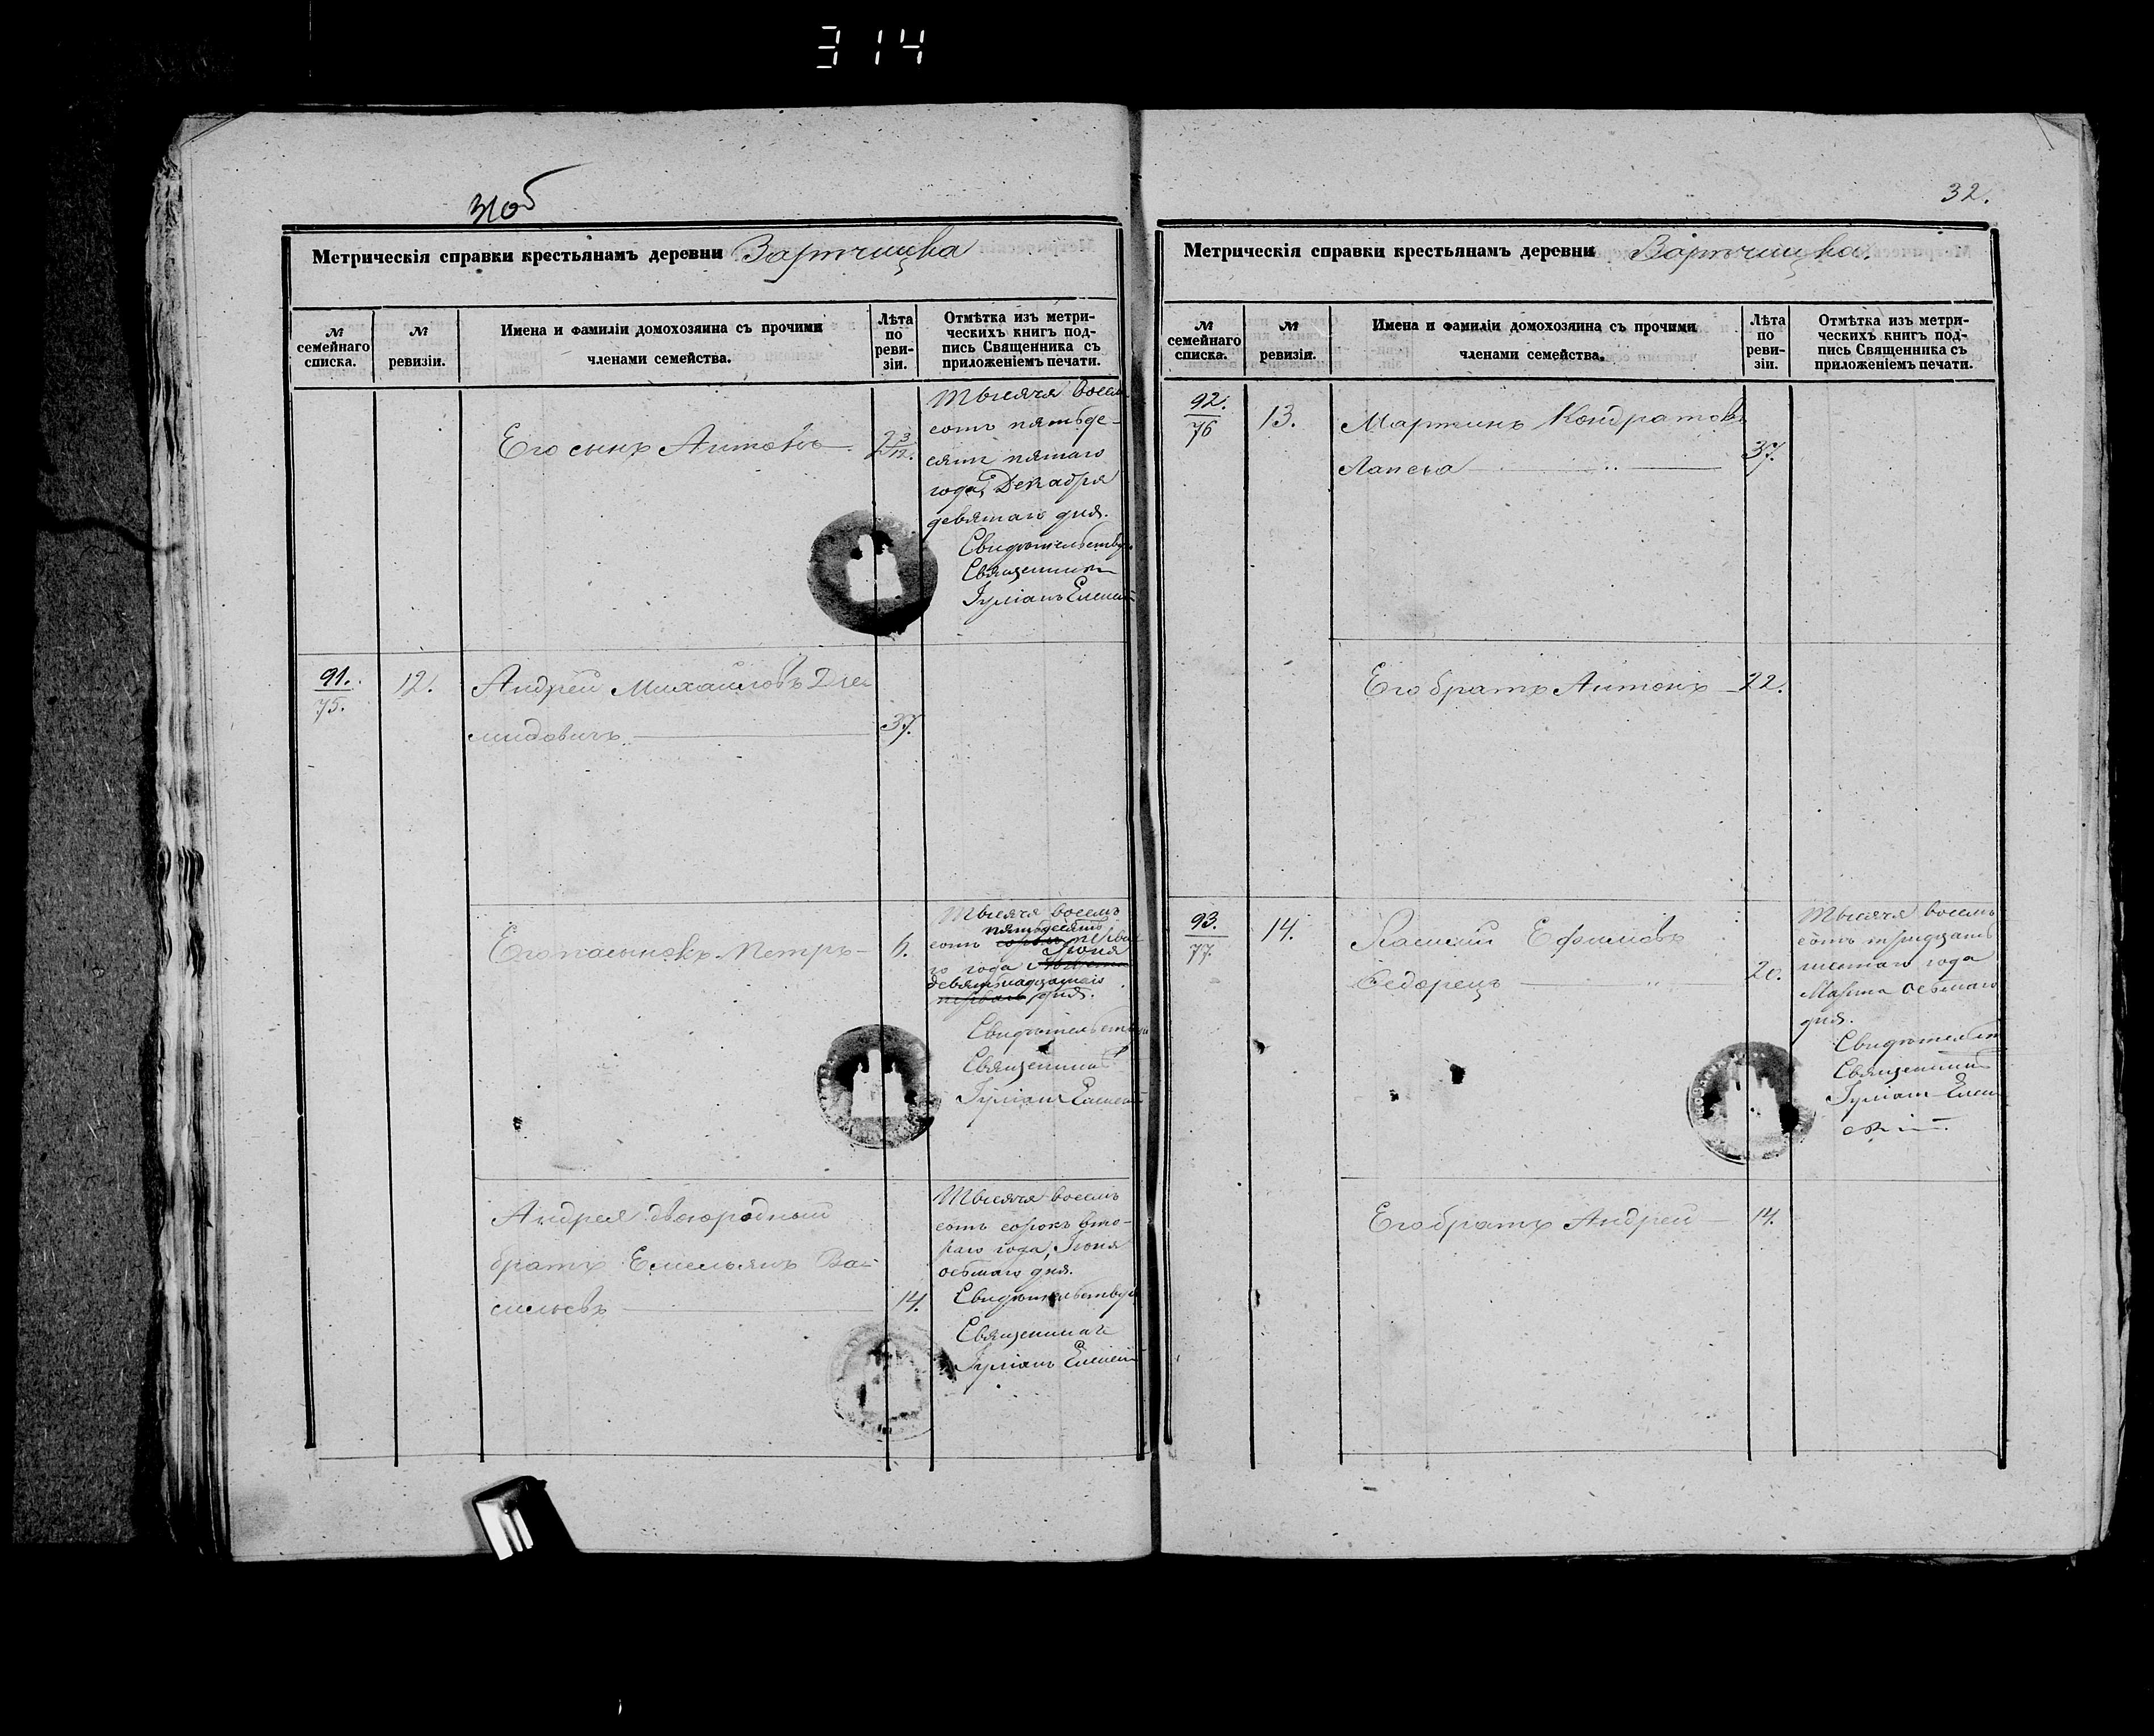 314
31об
Метрическія справки крестьянамъ деревни Вартчицка
№ семейнаго списка.
№ ревизіи.
Имена и фамиліи домохозяина съ прочими членами семейства.
Лѣта по реви-зіи.
Отмѣтка изъ метри-ческихъ книгъ под-пись Священника съ приложеніемъ печати.
Его сынъ Антонъ
2 3/12.
Тысяча восем
сотъ пятьде-
сятъ пятаго
года, Декабря
девятаго дня.
Свидѣтельству
Священникъ
Іуліанъ
91.
75.
12.
Андрей Михайловъ
мидовичъ.
37.
Его пасынокъ Петръ
6.
Тысяча восемь
пятьдесятъ
сотъ сорокъ перва
Іюня
го года
девятнадцатаго
перваго дня.
Священникъ
Іуліанъ
Андрея двоюродный
братъ Емельянъ Ва-
сильевъ
14.
Тысяча восемь
сотъ сорокъ вто-
раго года, Іюня
осьмаго дня.
Свидѣтельству
Священникъ
Іуліанъ
32.
Метрическія справки крестьянамъ деревни Вартчицка.
№ семейнаго списка.
№ ревизіи.
Имена и фамиліи домохозяина съ прочими членами семейства.
Лѣта по реви-зіи.
Отмѣтка изъ метри-ческихъ книгъ под-пись Священника съ приложеніемъ печати.
92.
76
13.
Мартинъ Кондратовъ
Лапека
37.
Его братъ Антонъ
22.
93.
77.
14.
Ефимовъ
Федорецъ
20.
Тысяча восемь
сотъ тридцать
шестаго года
Марта осьмаго
дня.
Свидѣтельст
Священникъ
Іуліанъ
Его братъ Андрей
14.